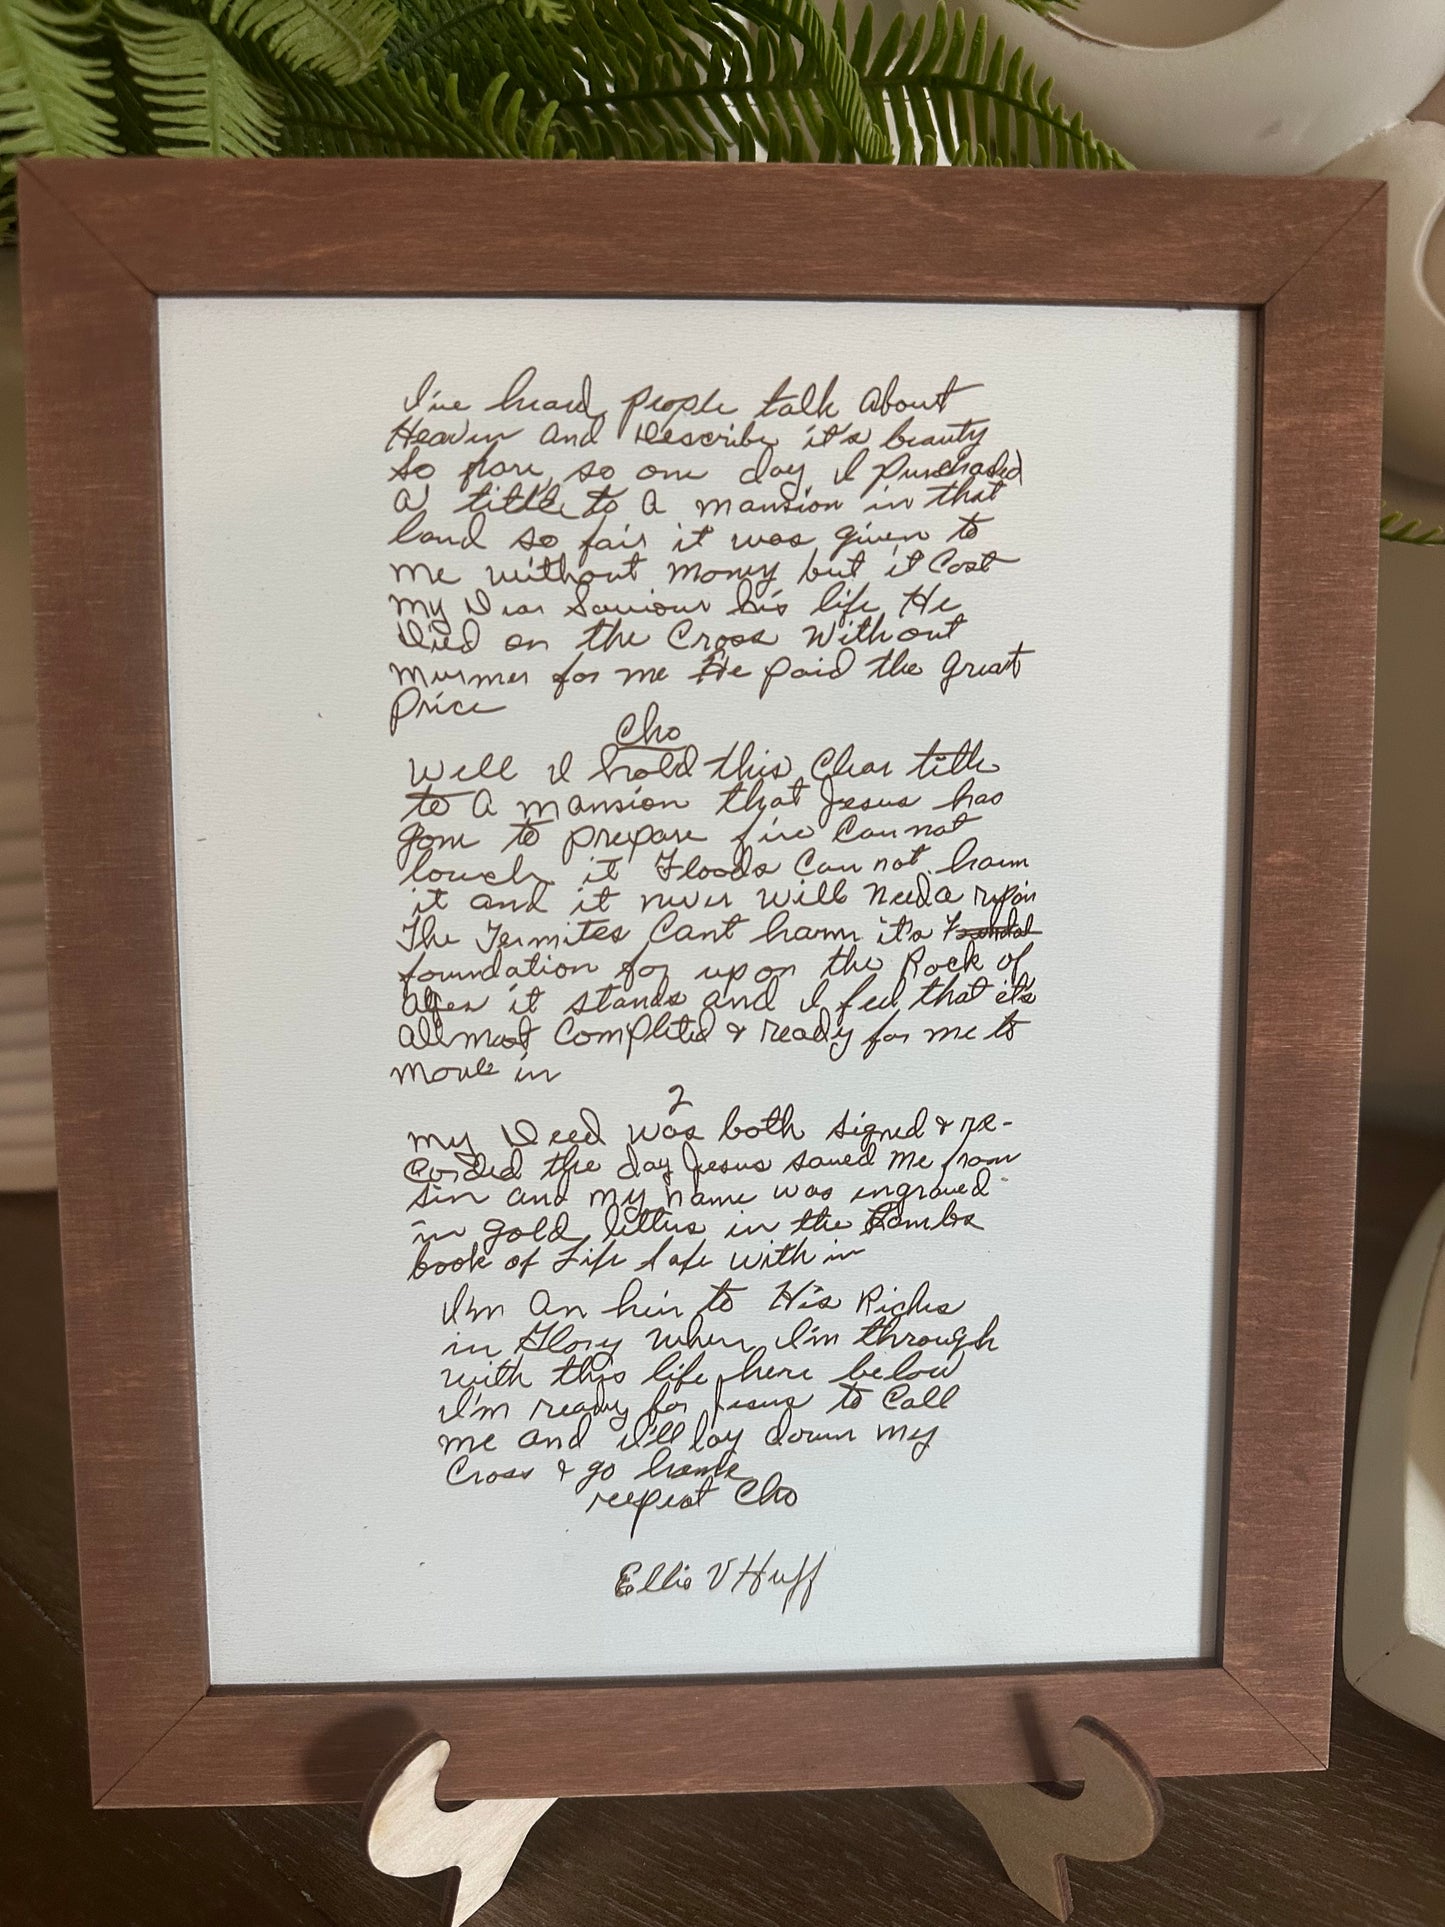 I've heard people talk about
Heaven and Describe it's beauty
So rare, so one day I purchased
a title to a mansion in that
land so fair it was given to
me without money but it cost
my Dear Saviour his life He
Died on the Cross without
murmer for me He paid the great
price
Cho
Well I hold this clear title
to a mansion that Jesus has
gone to prepare fire can not
touch it Floods can not harm
it and it never will need a repair
The Termites Cant harm it's
foundation for upon the Rock of
Ages it stands and I feel that it's
allmost completed & ready for me to
move in
2
my Deed was both signed & re-
corded the day Jesus saved me from
sin and my name was ingraved
in gold letters in the Lambs
book of Life safe with in
I'm an heir to His Riches
in Glory when I'm through
with this life here below
I'm ready for Jesus to call
me and I'll lay down my
Cross & go home
repeat Cho
Ellis V Huff